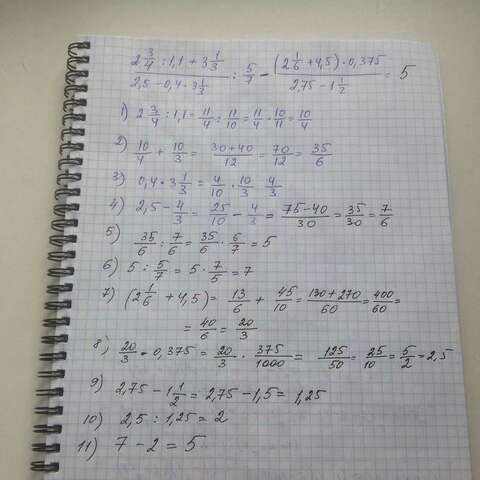 (2 3/4 : 1,1 + 3 1/3) / (2,5 - 0,4 · 3 1/3) : 5/7 - ((2 1/6 + 4,5) · 0,375) / (2,75 - 1 1/2) = 5
1) 2 3/4 : 1,1 = 11/4 : 11/10 = 11/4 · 10/11 = 10/4
2) 10/4 + 10/3 = (30+40)/12 = 70/12 = 35/6
3) 0,4 · 3 1/3 = 4/10 · 10/3 4/3
4) 2,5 - 4/3 = 25/10 - 4/3 = (75-40)/30 = 35/30 = 7/6
5) 35/6 : 7/6 = 35/6 · 6/7 = 5
6) 5 : 5/7 = 5 · 7/5 = 7
7) (2 1/6 + 4,5) = 13/6 + 45/10 = (130+270)/60 = 400/60 =
= 40/6 = 20/3
8) 20/3 · 0,375 = 20/3 · 375/1000 = 125/50 = 25/10 = 5/2 = 2,5
9) 2,75 - 1 1/2 = 2,75 - 1,5 = 1,25
10) 2,5 : 1,25 = 2
11) 7 - 2 = 5